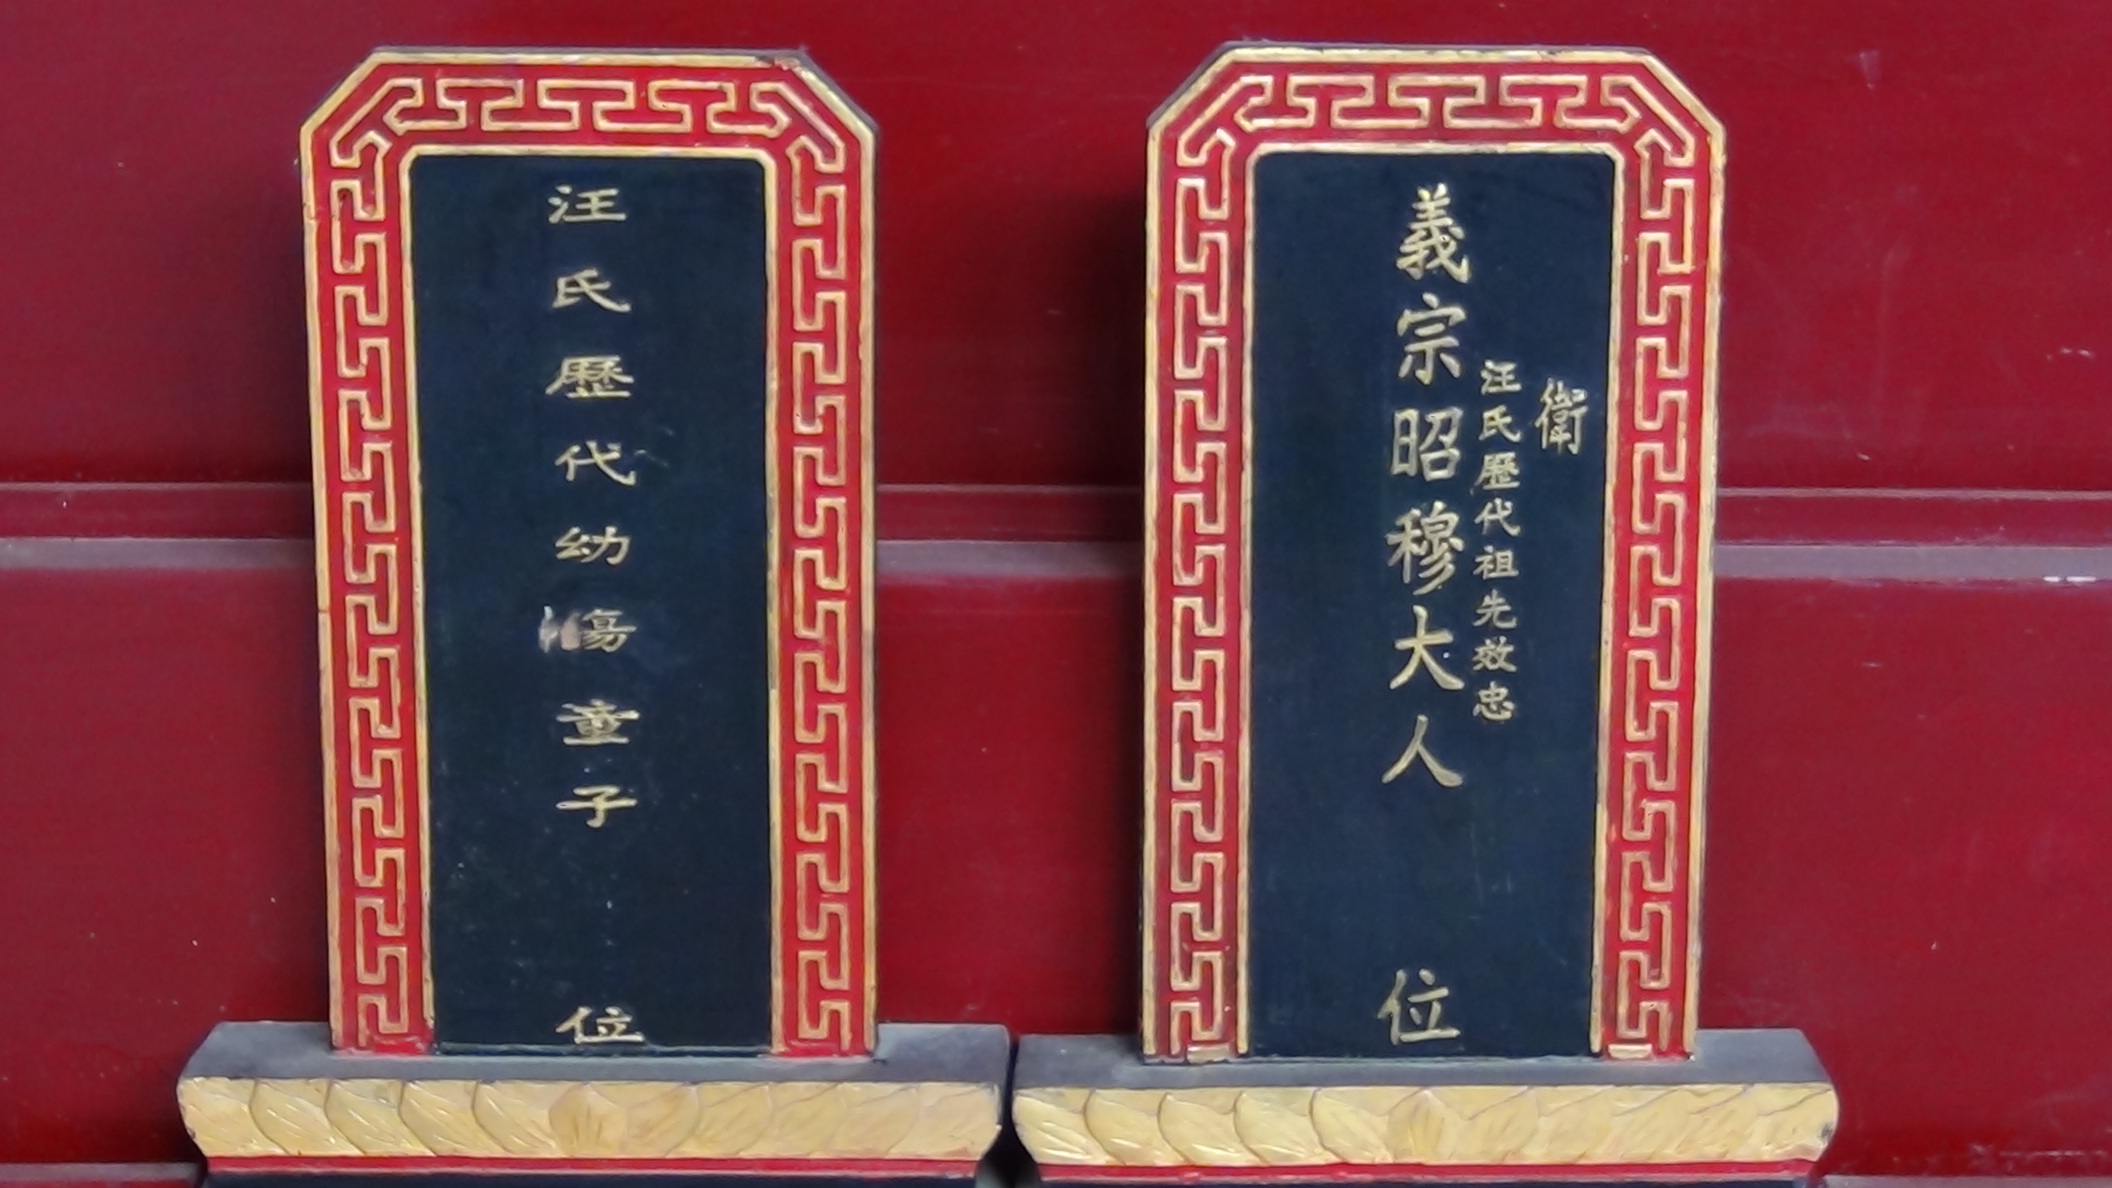 衛
汪氏歷代祖先效忠
義宗昭穆大人位
汪氏歷代幼殤童子位